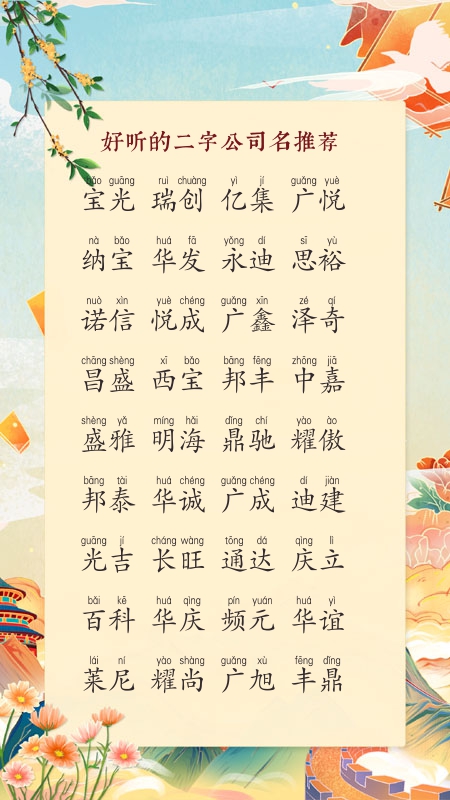 好听的二字公司名推荐
bǎo guāng ruì chuàng yì jí guǎng yuè
宝光 瑞创 亿集 广悦
nà bǎo huá fā yǒng dí sī yù
纳宝 华发 永迪 思裕
nuò xìn yuè chéng guǎng xīn zé qí
诺信 悦成 广鑫 泽奇
chāng shèng xī bǎo bāng fēng zhōng jiā
昌盛 西宝 邦丰 中嘉
shèng yǎ míng hǎi dǐng chí yào ào
盛雅 明海 鼎驰 耀傲
bāng tài huá chéng guǎng chéng dí jiàn
邦泰 华诚 广成 迪建
guāng jí cháng wàng tōng dá qìng lì
光吉 长旺 通达 庆立
bǎi kē huá qìng pín yuán huá yì
百科 华庆 频元 华谊
lái ní yào shàng guǎng xù fēng dǐng
莱尼 耀尚 广旭 丰鼎